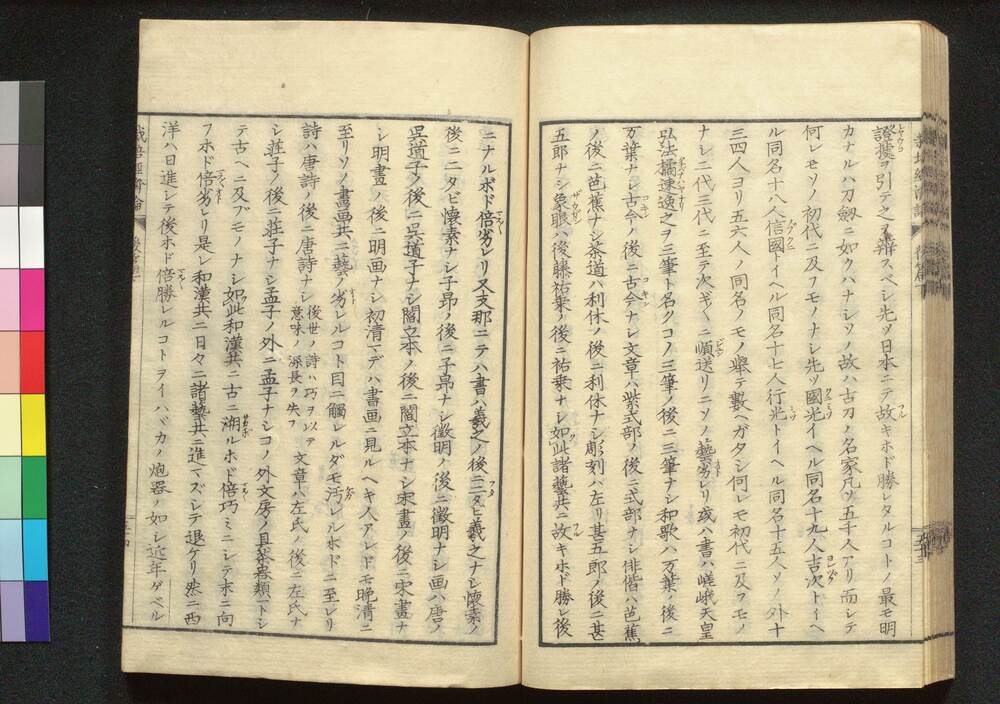 證據ヲ引テ之ヲ辯スベシ先ツ日本ニテ故キホド勝レタルコトノ最モ明
カナルハ刀劔ニ如クハナシソノ故ハ古刀ノ名家凡ソ五千人アリ而シテ
何レモソノ初代ニ及フモノナシ先ツ國光イヘル同名十九人吉次トイヘ
ル同名十八人信國トイヘル同名十七人行光トイヘル同名十五人ソノ外十
三四人ヨリ五六人ノ同名ノモノ舉テ數ヘガタシ何レモ初代ニ及フモノ
ナシ二代三代ニ至テ次ギ〱ニ順送リニソノ藝劣レリ或ハ書ハ嵯峨天皇
弘法橘逸之ヲ三筆ト名クコノ三筆ノ後ニ三筆ナシ和歌ハ万葉ノ後ニ
万葉ナシ古今ノ後ニ古今ナシ文章ハ紫式部ノ後ニ式部ナシ俳偕ハ芭蕉
ノ後ニ芭蕉ナシ茶道ハ利休ノ後ニ利休ナシ彫刻ハ左リ甚五郎ノ後ニ甚
五郎ナシ象眼ハ後藤祐乗ノ後ニ祐乗ナシ如此諸藝共ニ故キホド勝レ後
ニナルホド倍劣レリ又支那ニテハ書ハ羲之ノ後ニ二タヒ羲之ナシ懷素ノ
後ニ二タビ懷素ナシ子昂ノ後ニ子昂ナシ徴明ノ後ニ徴明ナシ画ハ唐ノ
呉道子ノ後ニ呉道子ナシ閻立本ノ後ニ閻立本ナシ宋畫ノ後ニ宋畫ナ
シ明畫ノ後ニ明画ナシ初清マデハ書画ニ見ルヘキ人アレドモ晩清ニ
至リソノ書画共ニ藝ノ劣レルコト目ニ觸レルダモ汚レルホドニ至レリ
詩ハ唐詩ノ後ニ唐詩ナシ後世ノ詩ハ巧ヲ以テ意味ノ深長ヲ失フ文章ハ左氏ノ後ニ左氏ナ
シ莊子ノ後ニ莊子ナシ孟子ノ外ニ孟子ナシコノ外文房ノ具茶器類一トシ
テ古ヘニ及ブモノナシ如此和漢共ニ古ニ溯ルホド倍巧ミニシテ末ニ向
フホド倍劣レリ是レ和漢共ニ日々ニ諸藝共ニ進マズシテ退ケリ然ニ西
洋ハ日進シテ後ホド倍勝レルコトヲイハバカノ炮器ノ如シ近年ゲベル